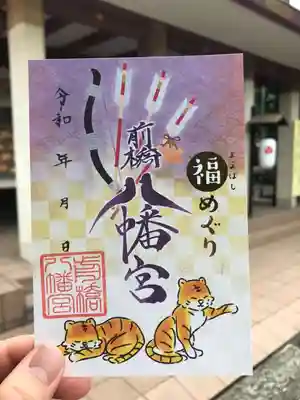 前橋
八幡宮
福めぐり
まえばし
令和　年　月　日
前橋
八幡宮